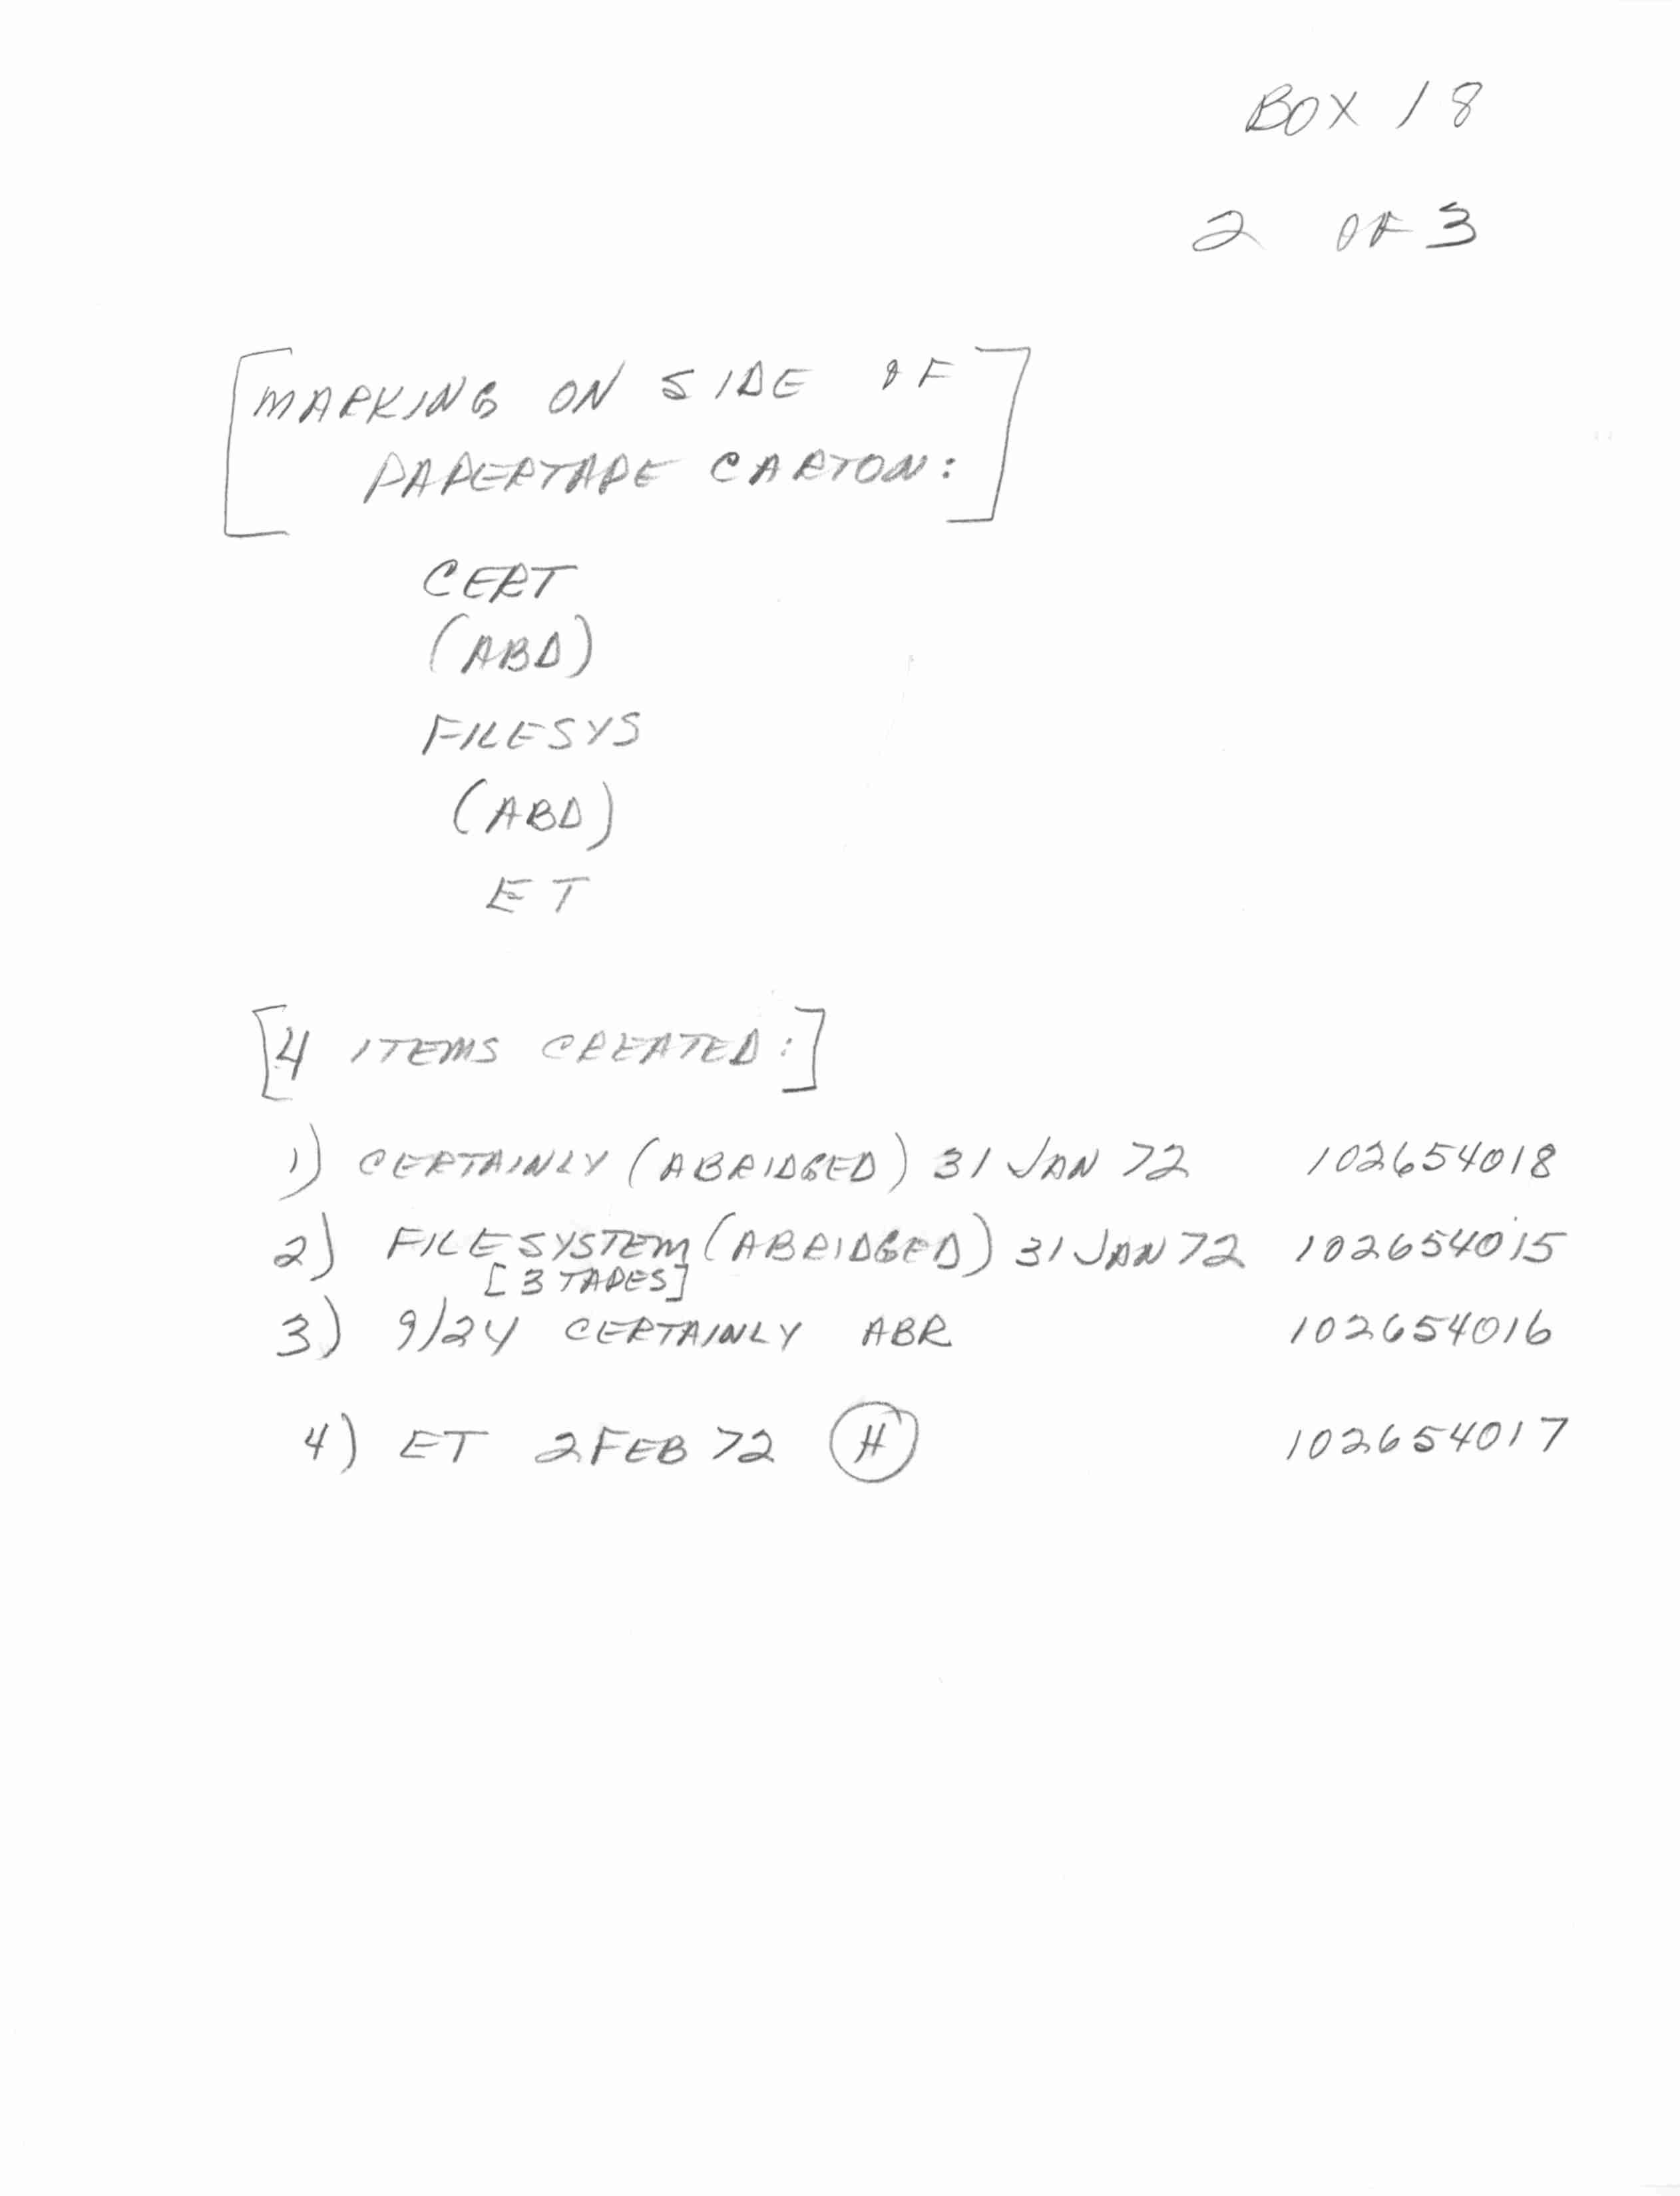 BOX 18
2 OF 3
[MARKING ON SIDE OF
PAPERTAPE CARTON:]
CERT
(ABD)
FILESYS
(ABD)
ET
[4 ITEMS CREATED:]
1) CERTAINLY (ABRIDGED) 31 JAN 72 102654018
2) FILESYSTEM (ABRIDGED) 31 JAN 72 102654015
[3 TAPES]
3) 9/24 CERTAINLY ABR 102654016
4) ET 2 FEB 72 H 102654017